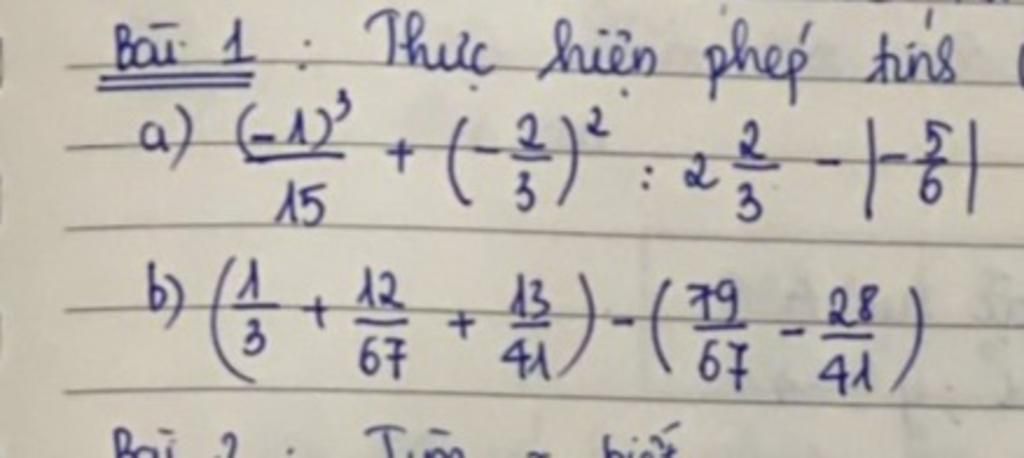 Bài 1 : Thực hiện phép tính (
a) (-1)³/15 + (-2/3)² : 2 2/3 - |-5/6|
b) (1/3 + 12/67 + 13/41) - (79/67 - 28/41)
Bài 2 : Tìm biết